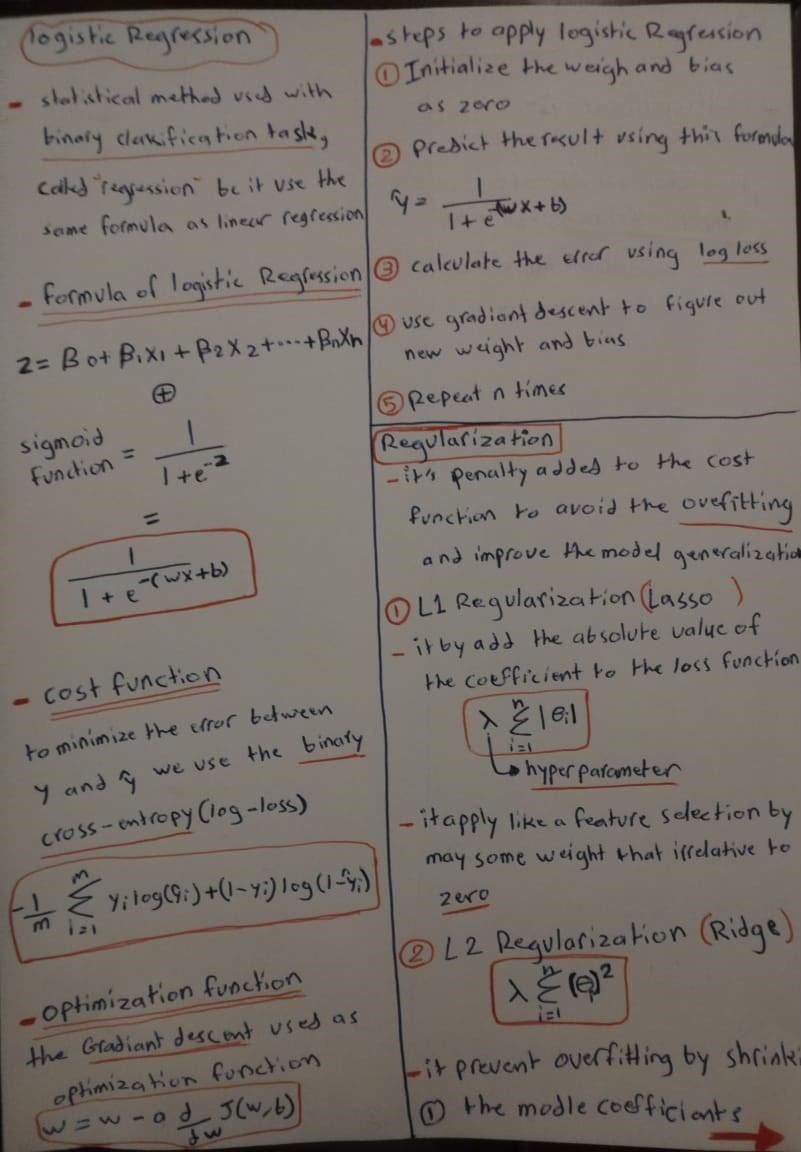 logistic Regression
- statistical method used with
binary classification task,
called "regression" bc it use the
same formula as linear regression
- formula of logistic Regression
z = β0 + β1x1 + β2x2 + ... + βnxn
⊕
sigmoid function = 1 / (1 + e^-z)
=
1 / (1 + e^-(wx+b))
- cost function
to minimize the error between
y and ŷ we use the binary
cross-entropy (log-loss)
-1/m Σ_{i=1}^{m} yi log(ŷi) + (1-yi) log(1-ŷi)
- optimization function
the Gradiant descent used as
optimization function
w = w - α d/dw J(w,b)
- steps to apply logistic Regression
① Initialize the weigh and bias
as zero
② Predict the result using this formula
ŷ = 1 / (1 + e^-(wx+b))
③ calculate the error using log loss
④ use gradiant descent to figure out
new weight and bias
⑤ Repeat n times
Regularization
- it's penalty added to the cost
function to avoid the overfitting
and improve the model generalization
① L1 Regularization (Lasso )
- it by add the absolute value of
the coefficient to the loss function
λ Σ_{i=1}^{n} |θi|
↳ hyperparameter
- it apply like a feature selection by
may some weight that irrelative to
zero
② L2 Regularization (Ridge)
λ Σ_{i=1}^{n} (θi)^2
- it prevent overfitting by shrinki
① the modle coefficiants →